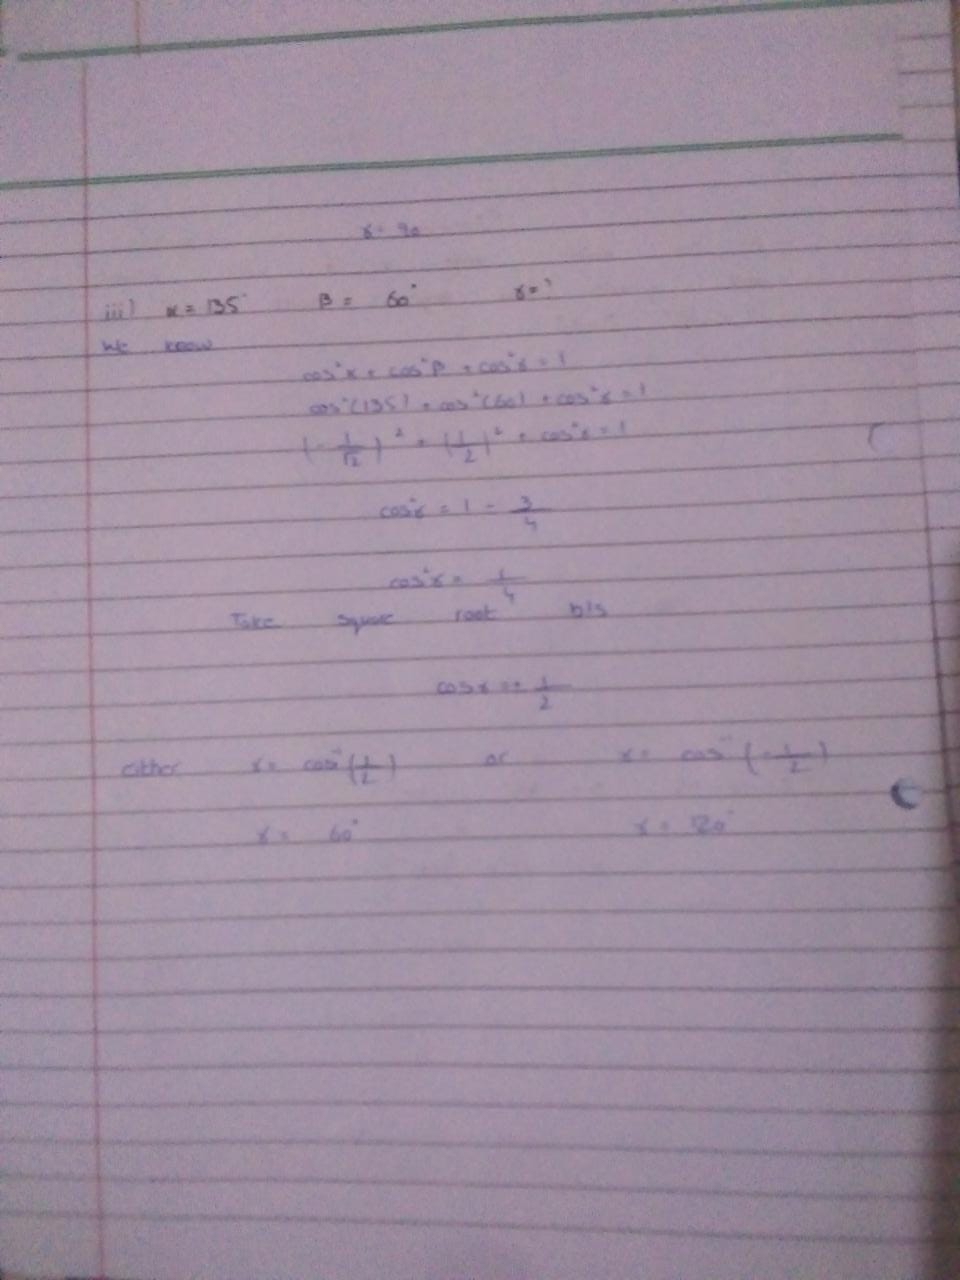 γ = 90
iii) α = 135° β = 60° γ = ?
We know
cos²α + cos²β + cos²γ = 1
cos²(135) + cos²(60) + cos²γ = 1
(-1/√2)² + (1/2)² + cos²γ = 1
cos²γ = 1 - 3/4
cos²γ = 1/4
Take square root b/s
cosγ = ± 1/2
either γ = cos⁻¹(1/2) or γ = cos⁻¹(-1/2)
γ = 60° γ = 120°